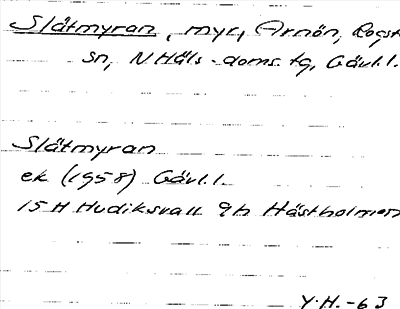 Slåtmyran, myr, Arnön, Rogst
sn, N Häls. doms. tg, Gävl. l.
Slåtmyran
ek (1958) Gävl. l.
15H Hudiksvall 9h Hästholmen
Y.H. -63